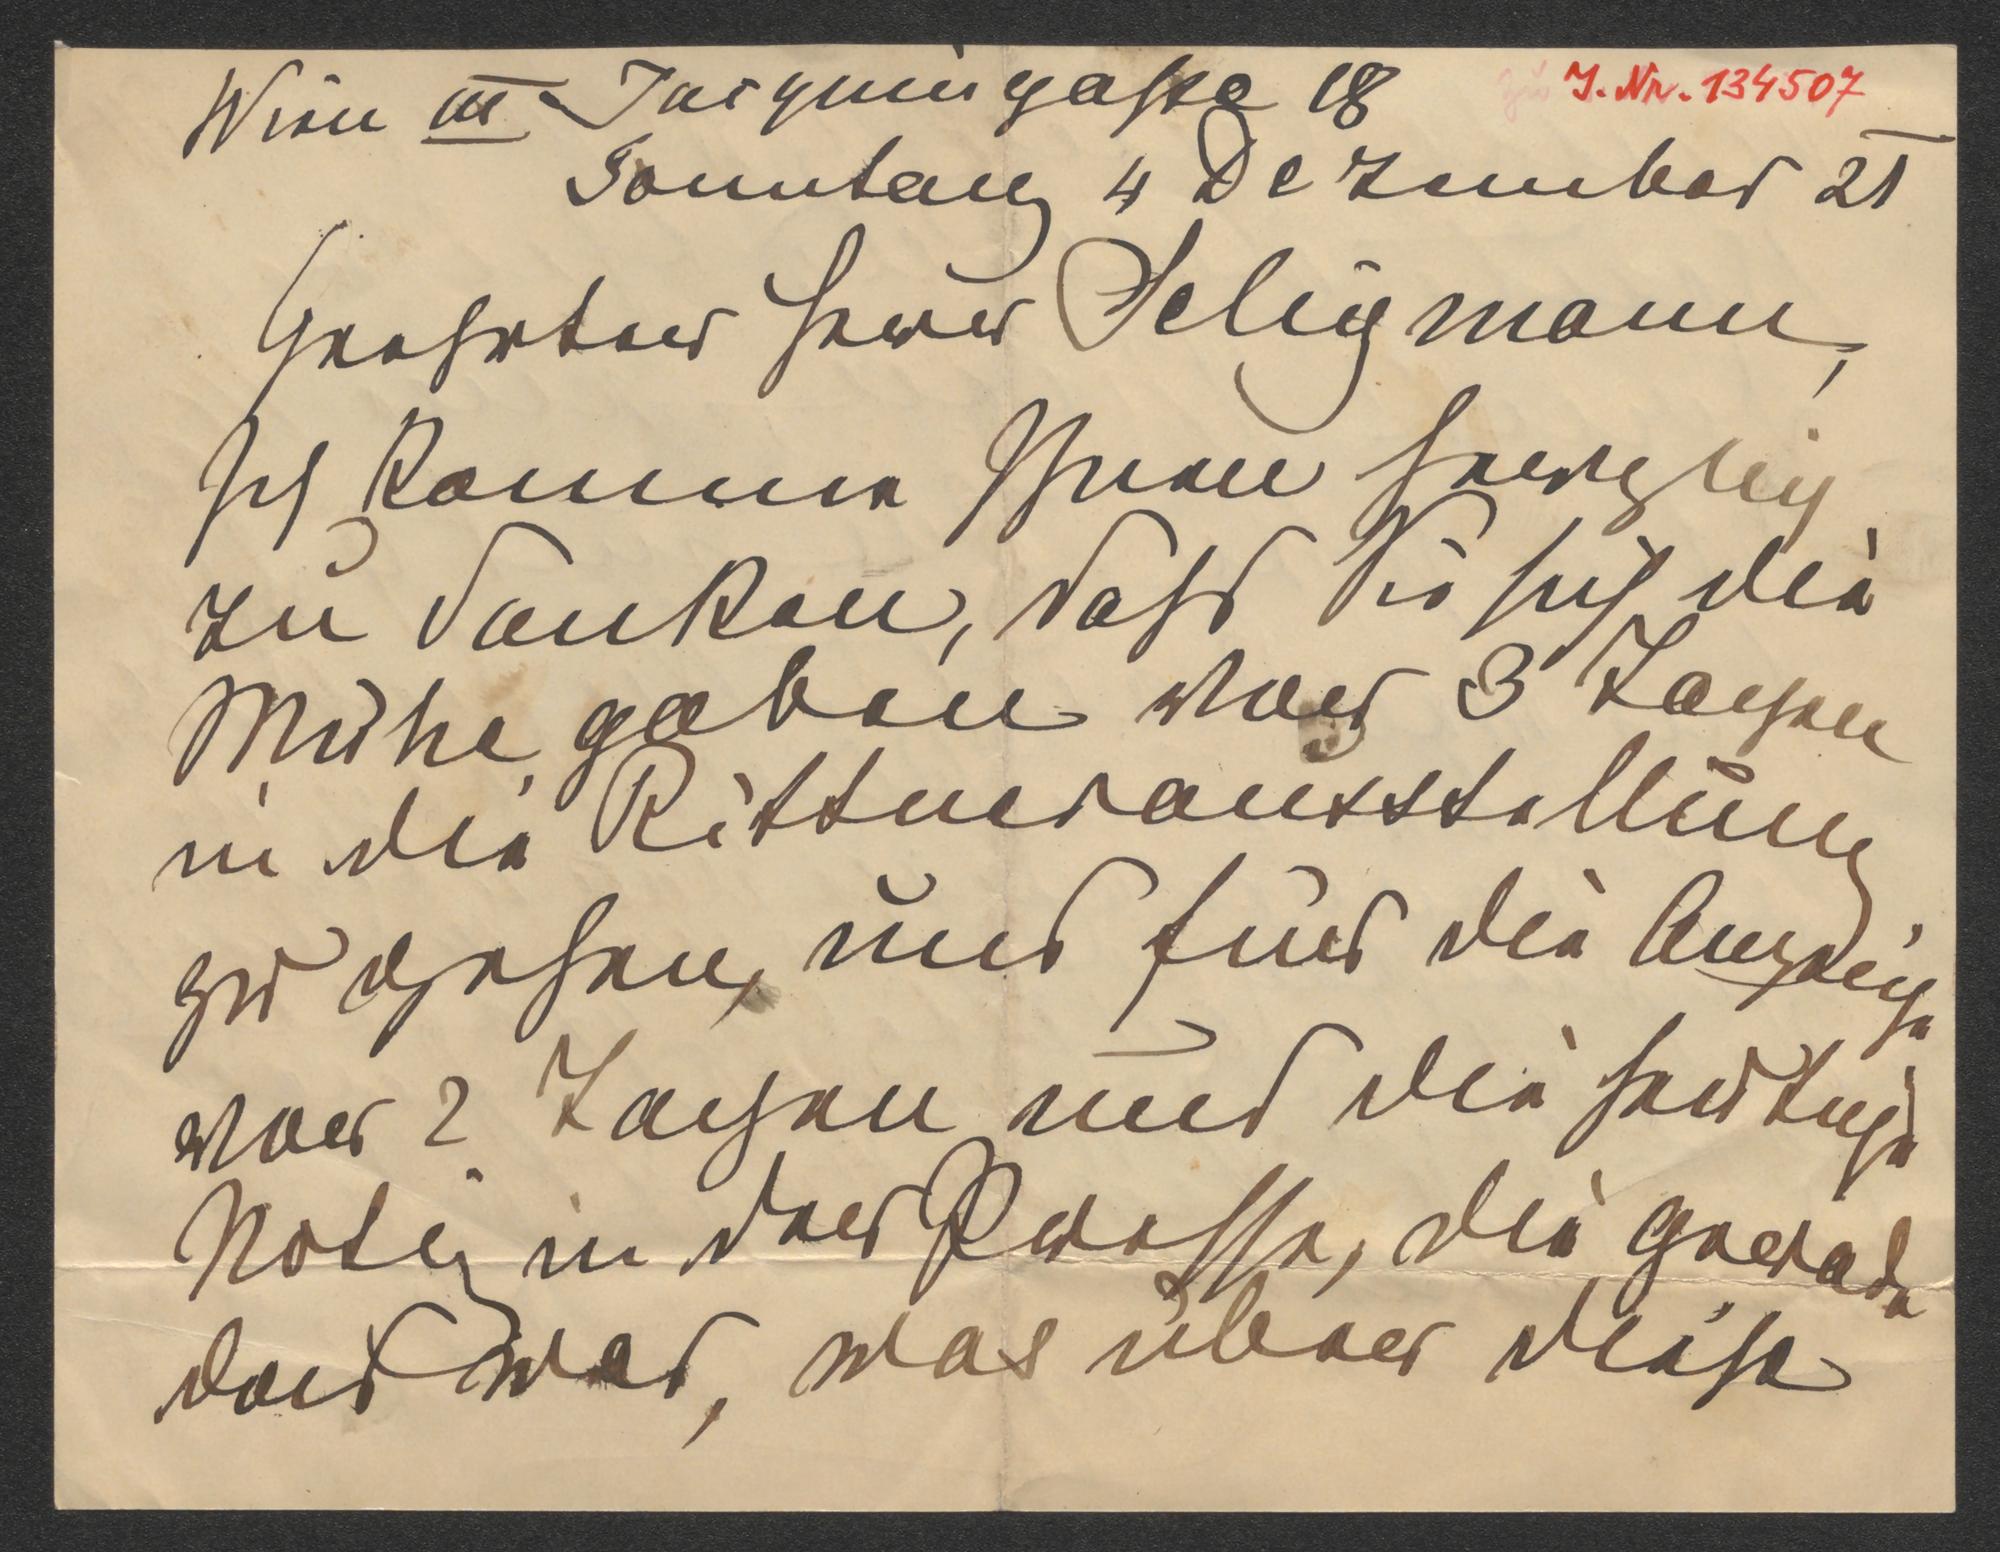 Wien III Jacquingasse 18
J. Nr. 134507
Sonntag 4 Dezember 21
Geehrter Herr Seligmann,
Ich komme Ihnen herzlich
zu danken, dass Sie sich die
Mühe gaben vor 3 Tagen
in die Rittnerausstellung
zu gehen, und für die Anzeige
vor 2 Tagen und die heutige
Notiz in der Presse, die gerade
dort war, was über diese